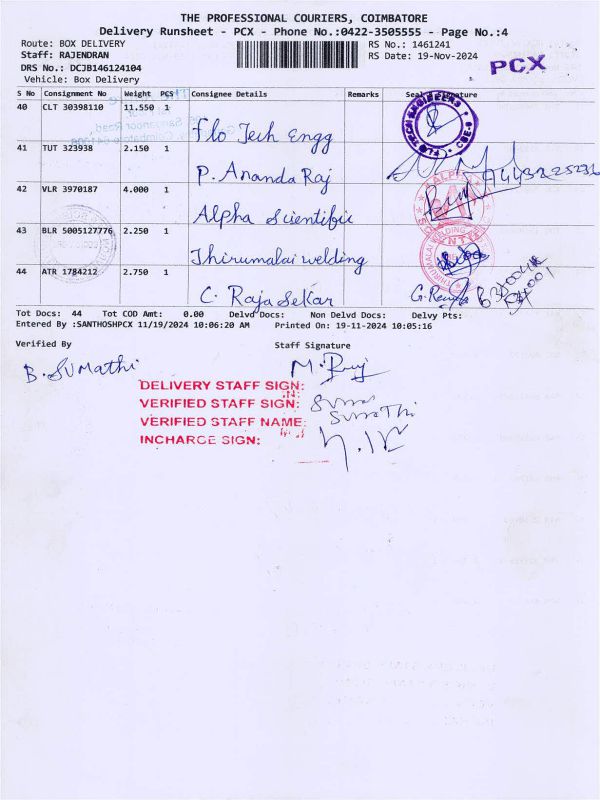 THE PROFESSIONAL COURIERS, COIMBATORE
Delivery Runsheet - PCX - Phone No.:0422-3505555 - Page No.:4
Route: BOX DELIVERY
RS No.: 1461241
Staff: RAJENDRAN
RS Date: 19-Nov-2024
DRS No.: DCJB146124104
PCX
Vehicle: Box Delivery
S No Consignment No Weight PCS Consignee Details Remarks Seal & Signature
40 CLT 30398110 11.550 1
Flo Tech Engg
41 TUT 323938 2.150 1
P. Ananda Raj
42 VLR 3970187 4.000 1
Alpha Scientific
43 BLR 5005127776 2.250 1
Thirumalai welding
44 ATR 1784212 2.750 1
C. Raja Sekar
Tot Docs: 44 Tot COD Amt: 0.00 Delvd Docs: Non Delvd Docs: Delvy Pts:
Entered By :SANTHOSHPCX 11/19/2024 10:06:20 AM Printed On: 19-11-2024 10:05:16
Verified By Staff Signature
B. SUMathi
DELIVERY STAFF SIGN:
VERIFIED STAFF SIGN:
VERIFIED STAFF NAME: SUMATHI
INCHARGE SIGN: